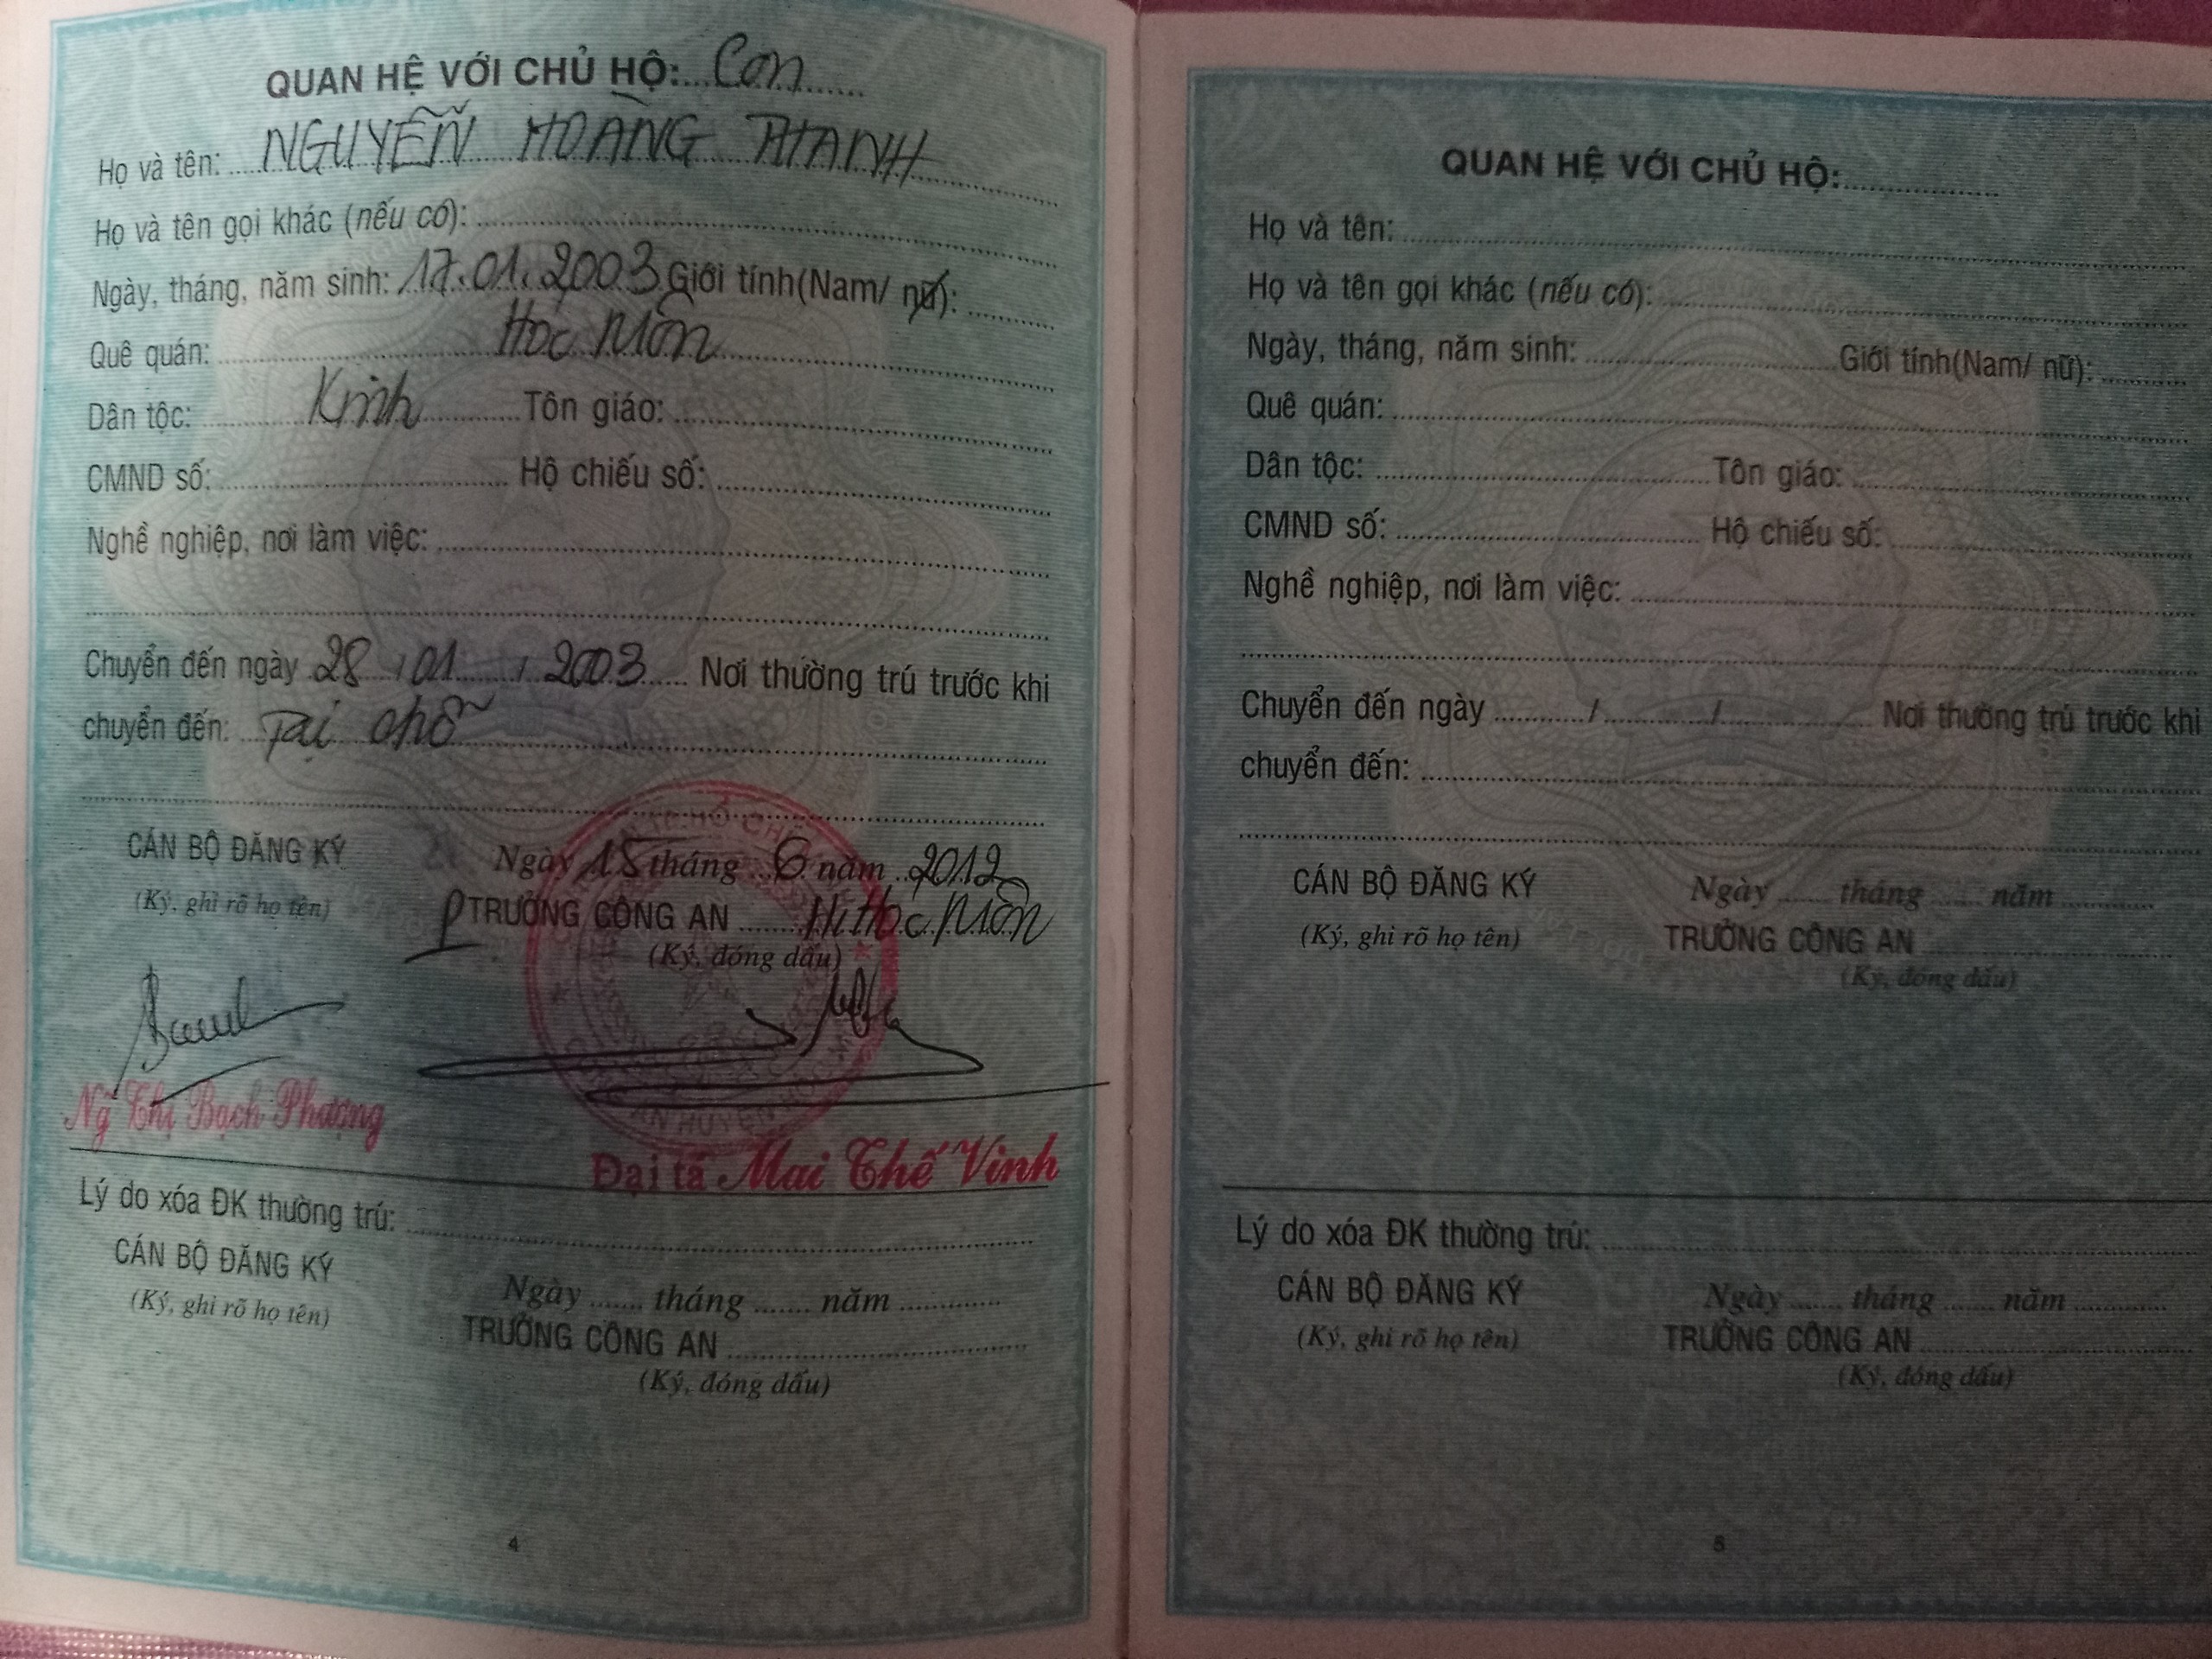 QUAN HỆ VỚI CHỦ HỘ: Con
Họ và tên: NGUYỄN HOÀNG THANH
Họ và tên gọi khác (nếu có):
Ngày, tháng, năm sinh: 17.01.2003 Giới tính(Nam/ nữ):
Quê quán: Hóc Môn
Dân tộc: Kinh Tôn giáo:
CMND số: Hộ chiếu số:
Nghề nghiệp, nơi làm việc:
Chuyển đến ngày 28 / 01 / 2003 Nơi thường trú trước khi
chuyển đến: Tại chỗ
CÁN BỘ ĐĂNG KÝ
(Ký, ghi rõ họ tên)
Ngày 15 tháng 6 năm 2012
P TRƯỞNG CÔNG AN H. Hóc Môn
(Ký, đóng dấu)
Ng Thị Bạch Phượng
Đại tá Mai Thế Vinh
Lý do xóa ĐK thường trú:
CÁN BỘ ĐĂNG KÝ
(Ký, ghi rõ họ tên)
Ngày ....... tháng ....... năm .............
TRƯỞNG CÔNG AN
(Ký, đóng dấu)
4
QUAN HỆ VỚI CHỦ HỘ:
Họ và tên:
Họ và tên gọi khác (nếu có):
Ngày, tháng, năm sinh: Giới tính(Nam/ nữ):
Quê quán:
Dân tộc: Tôn giáo:
CMND số: Hộ chiếu số:
Nghề nghiệp, nơi làm việc:
Chuyển đến ngày ............/............../.................. Nơi thường trú trước khi
chuyển đến:
CÁN BỘ ĐĂNG KÝ
(Ký, ghi rõ họ tên)
Ngày ....... tháng ....... năm .............
TRƯỞNG CÔNG AN
(Ký, đóng dấu)
Lý do xóa ĐK thường trú:
CÁN BỘ ĐĂNG KÝ
(Ký, ghi rõ họ tên)
Ngày ....... tháng ....... năm .............
TRƯỞNG CÔNG AN
(Ký, đóng dấu)
5